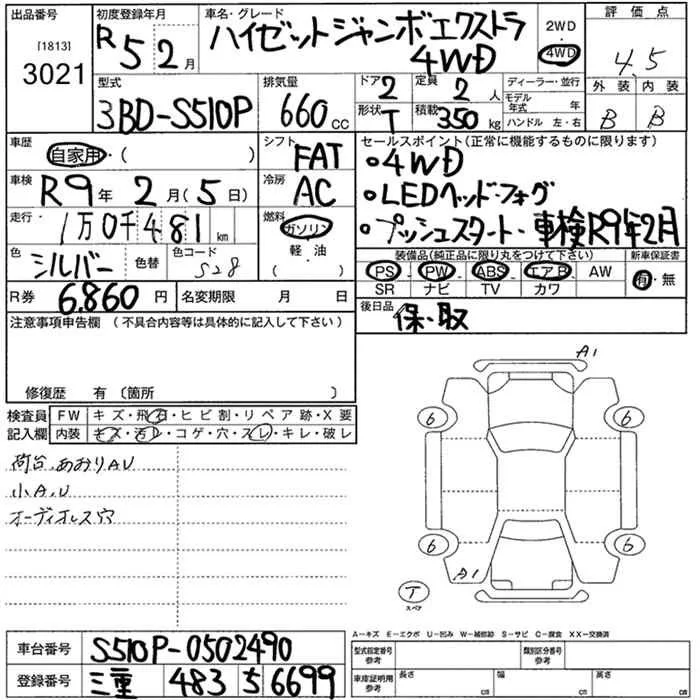 出品番号 [1813] 3021
初度登録年月 R5 2月
車名・グレード ハイゼットジャンボエクストラ 4WD
2WD・4WD
評価点 4.5
外装 内装
B B
型式 3BD-S510P
排気量 660cc
ドア 2 定員 2人
形状 T 積載 350kg
ディーラー・並行
モデル年式 年
ハンドル 左・右
車歴 自家用・( )
シフト FAT
車検 R9年2月(5日)
冷房 AC
走行 1万0千481km
燃料 ガソリン・軽油
色 シルバー 色替 色コード S28
R券 6.860円 名変期限 月 日
セールスポイント(正常に機能するものに限ります)
•4WD
•LEDヘッド・フォグ
•プッシュスタート・車検R9年2月
装備品(純正品に限り丸をつけて下さい) 新車保証書
PS・PW・ABS・エアB・AW 有・無
SR ナビ TV カワ
後日品 保・取
注意事項申告欄(不具合内容等は具体的に記入して下さい)
修復歴 有(箇所 )
検査員記入欄
FW キズ・飛石・ヒビ割・リペア跡・X要
内装 キズ・汚レ・コゲ・穴・スレ・キレ・破レ
荷台.あおりAU
小A.U
オーディオレス穴
A1
6 6
6 6
A1
T
スペア
A-キズ E-エクボ U-凹み W-補修跡 S-サビ C-腐食 XX-交換済
車台番号 S510P-0502490
型式指定番号 参考 類別区分番号 参考
登録番号 三重 483 5 6699
車庫証明用 参考 長さ cm 幅 cm 高さ cm